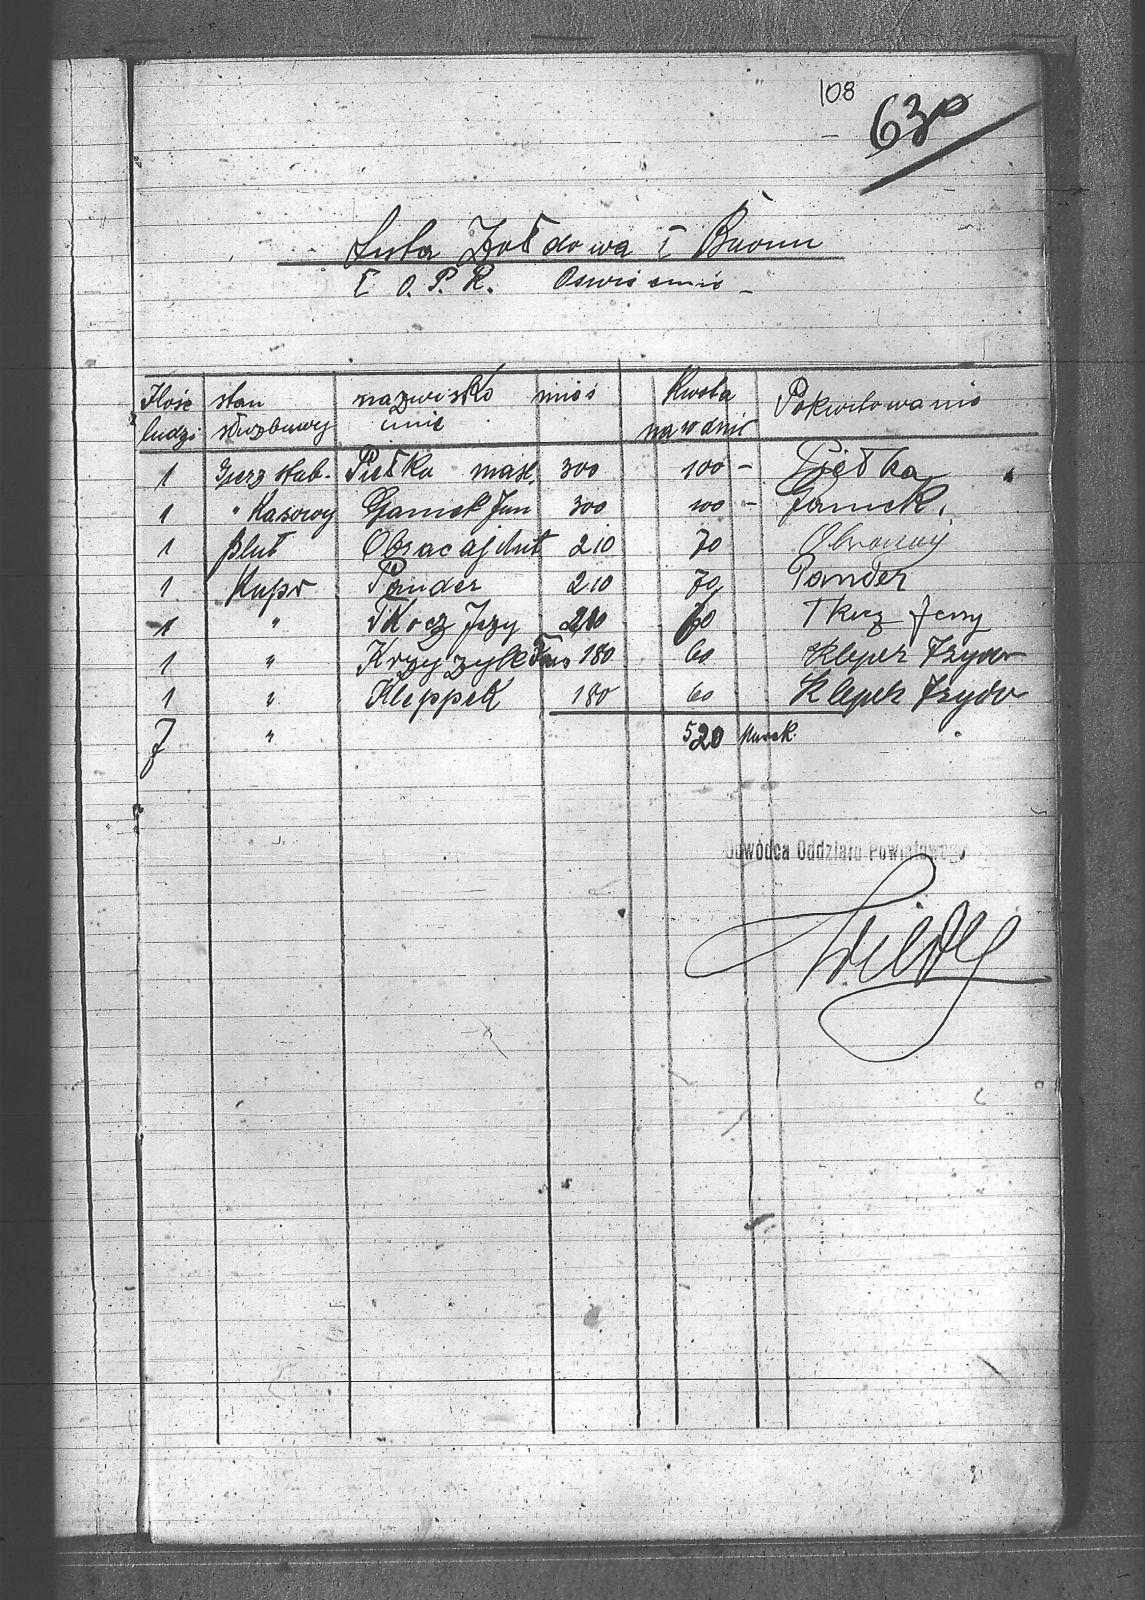 108
63
Lista Żołdowa I Baonu
I O.P.R. Oswiemie
Ilość ludzi stan służbowy nazwisko imie mies Kwota na 10 dnie Pokwitowanie
1 Pietka max. 300 100 - Pietka
1 " Kasowy Gamck Jan 300 100 - Gamck.
1 plut 210 70
1 Kapr Pander 210 70 Pander
1 " Tkocz Jerzy 210 70 Tkocz Jerzy
1 " Krzyzyk 180 60 Klepek Izydor
1 " Kleppek 180 60 Klepek Izydor
7 " 520 Marek
Dowódca Oddziału Powiatowego